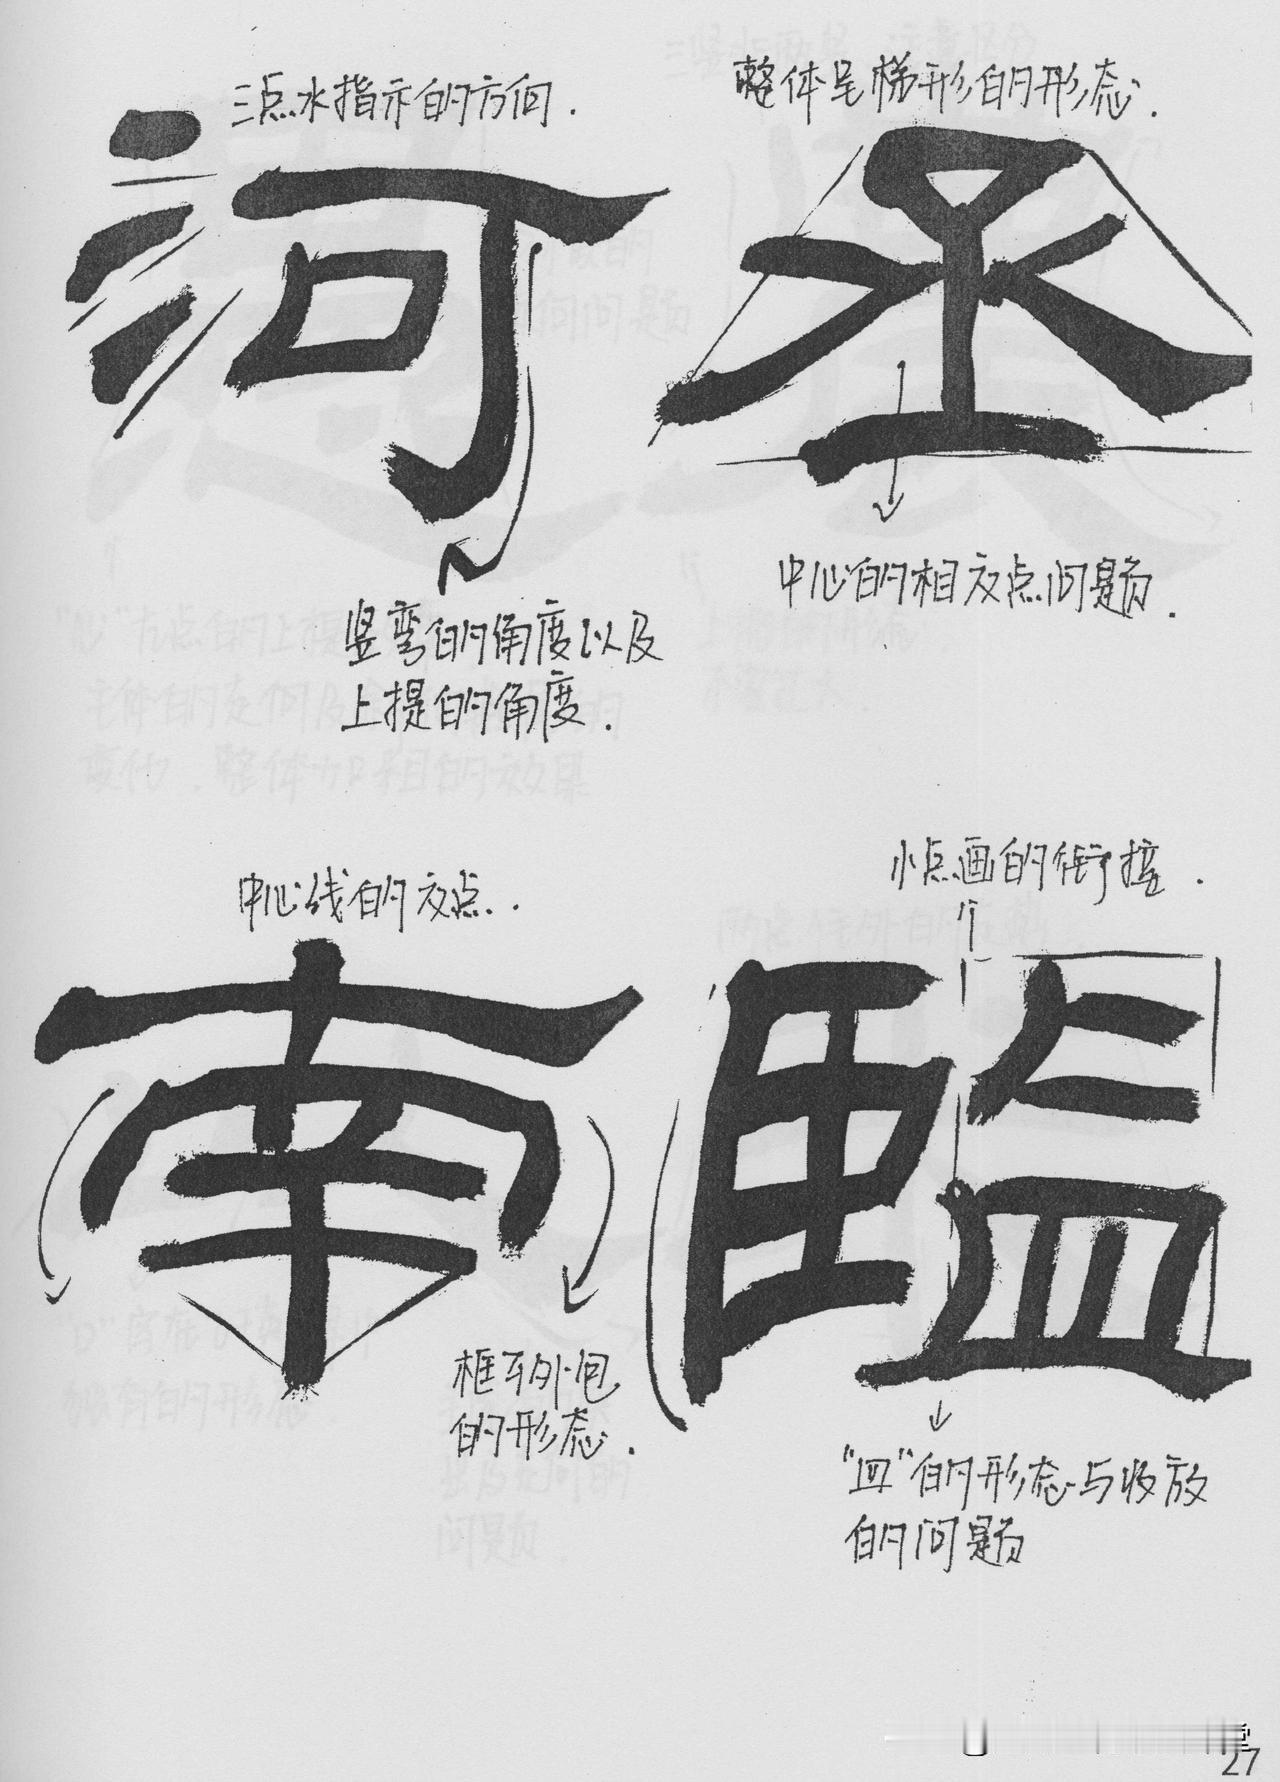 三点水指示的方向.
整体呈梯形的形态.
河
丞
中心的相交点问题.
竖弯的角度以及
上提的角度.
中心线的交点.
小点画的衔接.
南
臨
框下外包
的形态.
"皿"的形态与收放
的问题
27